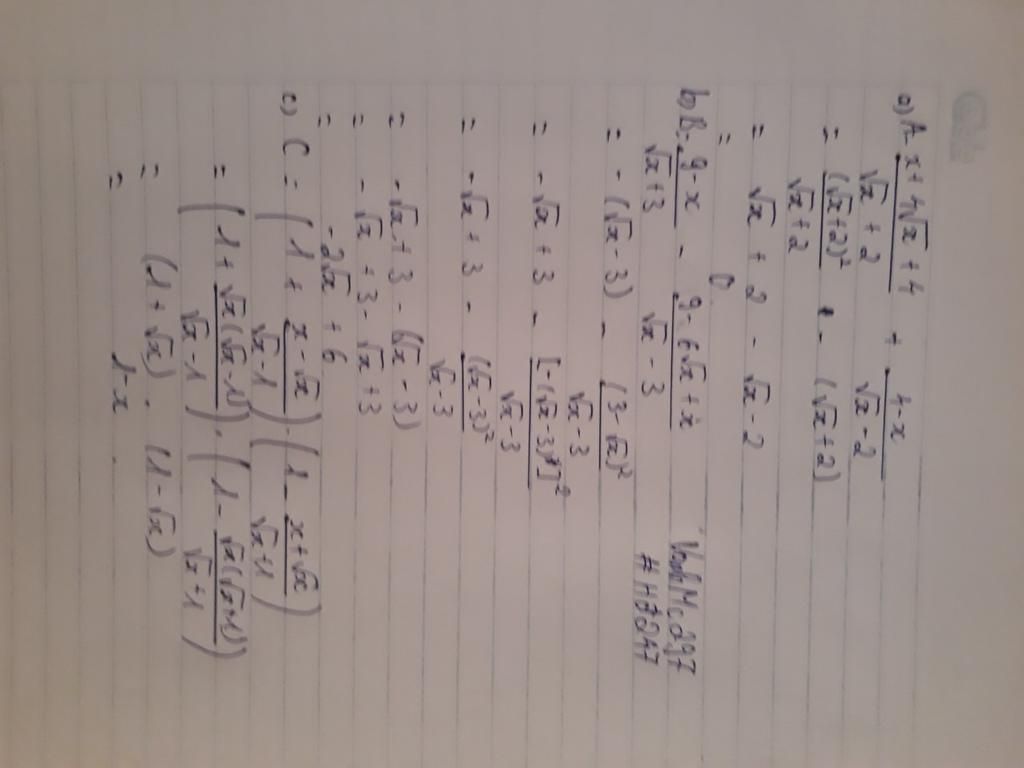 a) A = \frac{x + 4\sqrt{x} + 4}{\sqrt{x} + 2} + \frac{4 - x}{\sqrt{x} - 2}
= \frac{(\sqrt{x} + 2)^2}{\sqrt{x} + 2} + - (\sqrt{x} + 2)
= \sqrt{x} + 2 - \sqrt{x} - 2
= 0
b) B = \frac{9 - x}{\sqrt{x} + 3} - \frac{9 - 6\sqrt{x} + x}{\sqrt{x} - 3}
# HĐ247
= - (\sqrt{x} - 3) - \frac{(3 - \sqrt{x})^2}{\sqrt{x} - 3}
= - \sqrt{x} + 3 - \frac{[-(\sqrt{x} - 3)]^2}{\sqrt{x} - 3}
= - \sqrt{x} + 3 - \frac{(\sqrt{x} - 3)^2}{\sqrt{x} - 3}
= - \sqrt{x} + 3 - (\sqrt{x} - 3)
= - \sqrt{x} + 3 - \sqrt{x} + 3
= - 2\sqrt{x} + 6
c) C = \left( 1 + \frac{x - \sqrt{x}}{\sqrt{x} - 1} \right) . \left( 1 - \frac{x + \sqrt{x}}{\sqrt{x} + 1} \right)
= \left( 1 + \frac{\sqrt{x}(\sqrt{x} - 1)}{\sqrt{x} - 1} \right) . \left( 1 - \frac{\sqrt{x}(\sqrt{x} + 1)}{\sqrt{x} + 1} \right)
= (1 + \sqrt{x}) . (1 - \sqrt{x})
= 1 - x